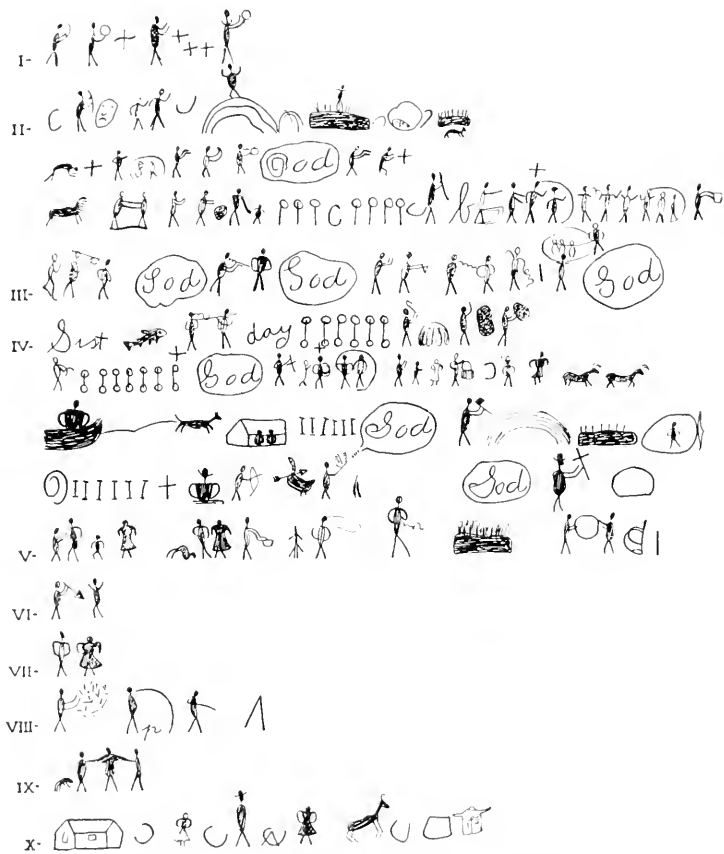 I-
II-
God
III- God God God
IV- day
God
God
God
V-
VI-
VII-
VIII-
IX-
X-